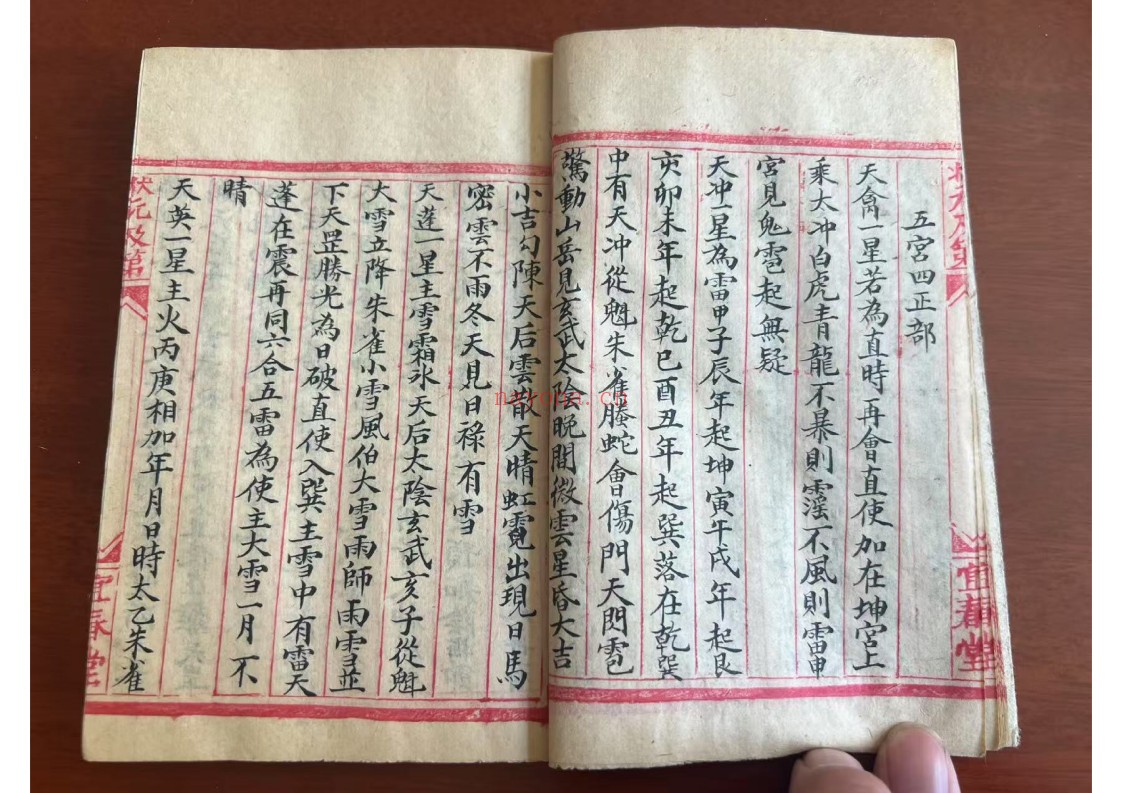 五宮四正部
天禽一星若為直時再會直使加在坤宮上
乘太冲白虎青龍不暴則雲濛不風則雷申
宮見鬼雹起無疑
天冲一星為雷甲子辰年起坤寅午戌年起艮
亥卯未年起乾巳酉丑年起巽落在乾巽
中有天冲從魁朱雀螣蛇會傷門天閃雹
驚動山岳見玄武太陰晚間微雲星昏大吉
小吉勾陳天后雲散天晴虹霓出現日馬
密雲不雨冬天見日祿有雪
天蓬一星主雪霜氷天后太陰玄武亥子從魁
大雪立降朱雀小雪風伯大雪雨師雨雪並
下天罡勝光為日破直使入巽主雪中有雷天
蓬在震再同六合五雷為使主大雪一月不
晴
天英一星主火丙庚相加年月日時太乙朱雀
狀元及第
宜春堂
狀元及第
宜春堂